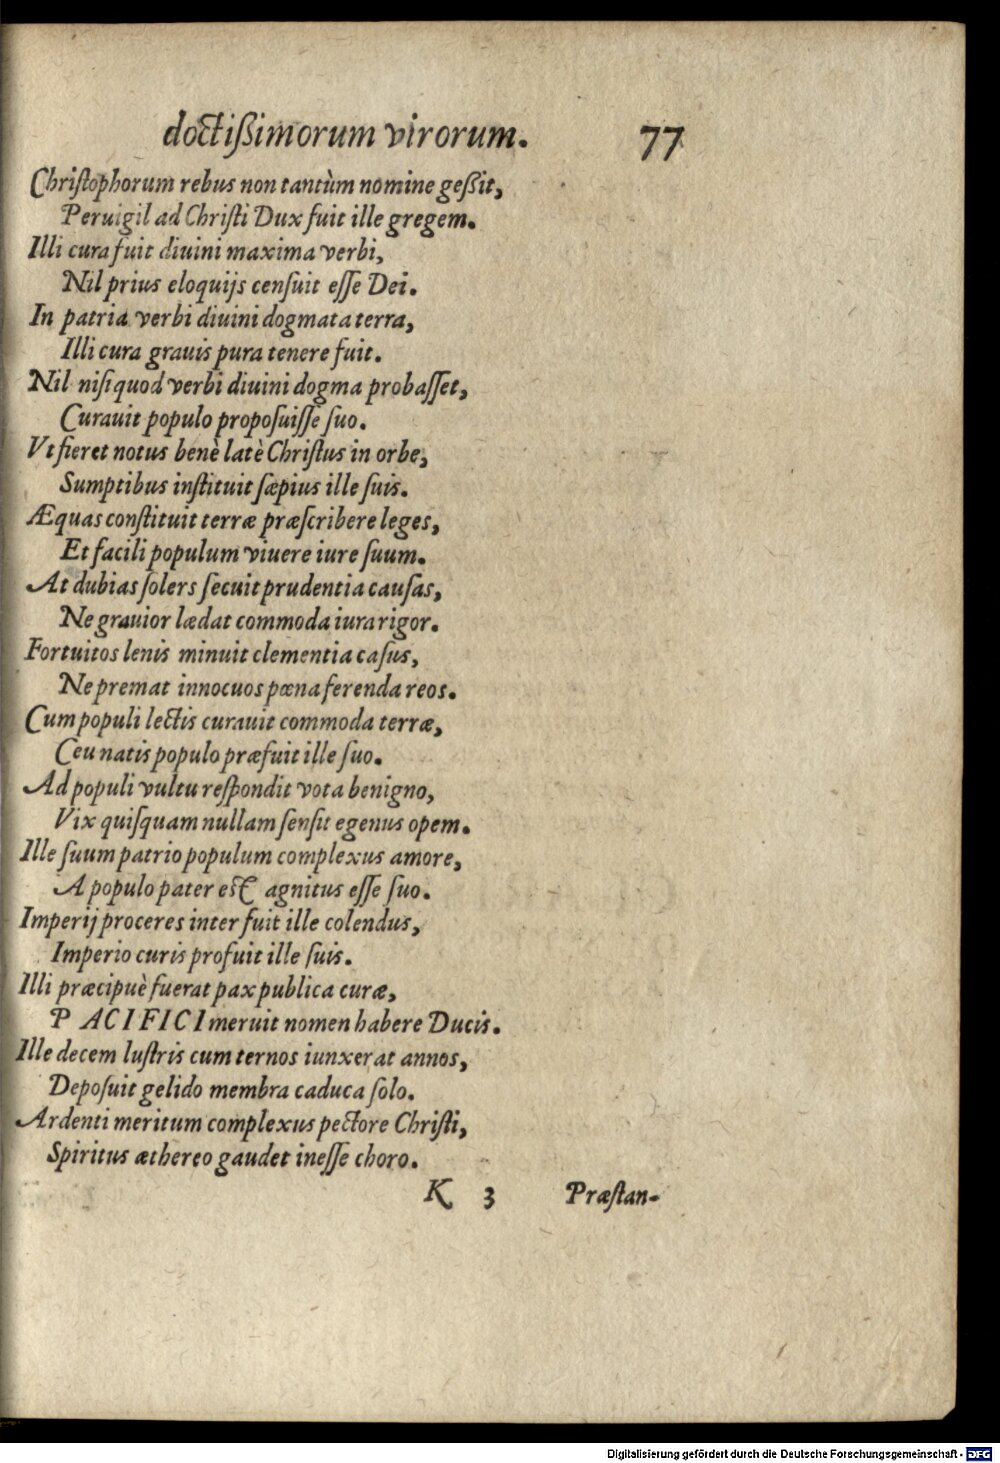 doctißimorum virorum. 77
Chriſtophorum rebus non tantùm nomine geßit,
Peruigil ad Chriſti Dux fuit ille gregem.
Illi cura fuit diuini maxima verbi,
Nil prius eloquijs cenſuit eſſe Dei.
In patria verbi diuini dogmata terra,
Illi cura grauis pura tenere fuit.
Nil niſi quod verbi diuini dogma probaſſet,
Curauit populo propoſuiſſe ſuo.
Vt fieret notus benè latè Chriſtus in orbe,
Sumptibus inſtituit ſæpius ille ſuis.
Æquas conſtituit terræ præſcribere leges,
Et facili populum viuere iure ſuum.
At dubias ſolers ſecuit prudentia cauſas,
Ne grauior lædat commoda iura rigor.
Fortuitos lenis minuit clementia caſus,
Ne premat innocuos pœna ferenda reos.
Cum populi lectis curauit commoda terræ,
Ceu natis populo præfuit ille ſuo.
Ad populi vultu reſpondit vota benigno,
Vix quiſquam nullam ſenſit egenus opem.
Ille ſuum patrio populum complexus amore,
A populo pater eſt agnitus eſſe ſuo.
Imperij proceres inter fuit ille colendus,
Imperio curis profuit ille ſuis.
Illi præcipuè fuerat pax publica curæ,
PACIFICI meruit nomen habere Ducis.
Ille decem luſtris cum ternos iunxerat annos,
Depoſuit gelido membra caduca ſolo.
Ardenti meritum complexus pectore Chriſti,
Spiritus æthereo gaudet ineſſe choro.
K 3 Præſtan-
Digitalisierung gefördert durch die Deutsche Forschungsgemeinschaft - DFG